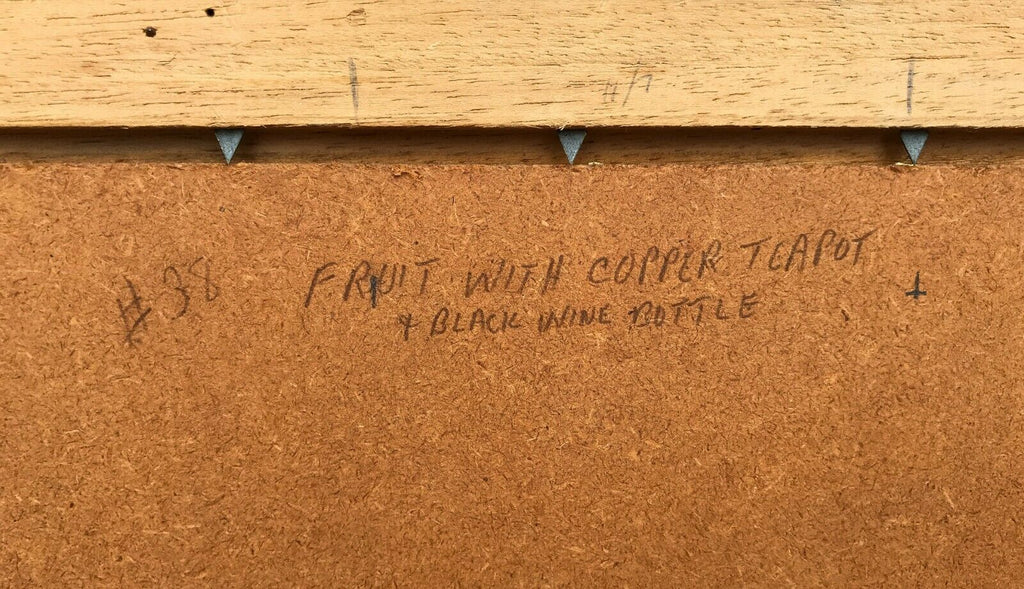 #38
FRUIT WITH COPPER TEAPOT
& BLACK WINE BOTTLE